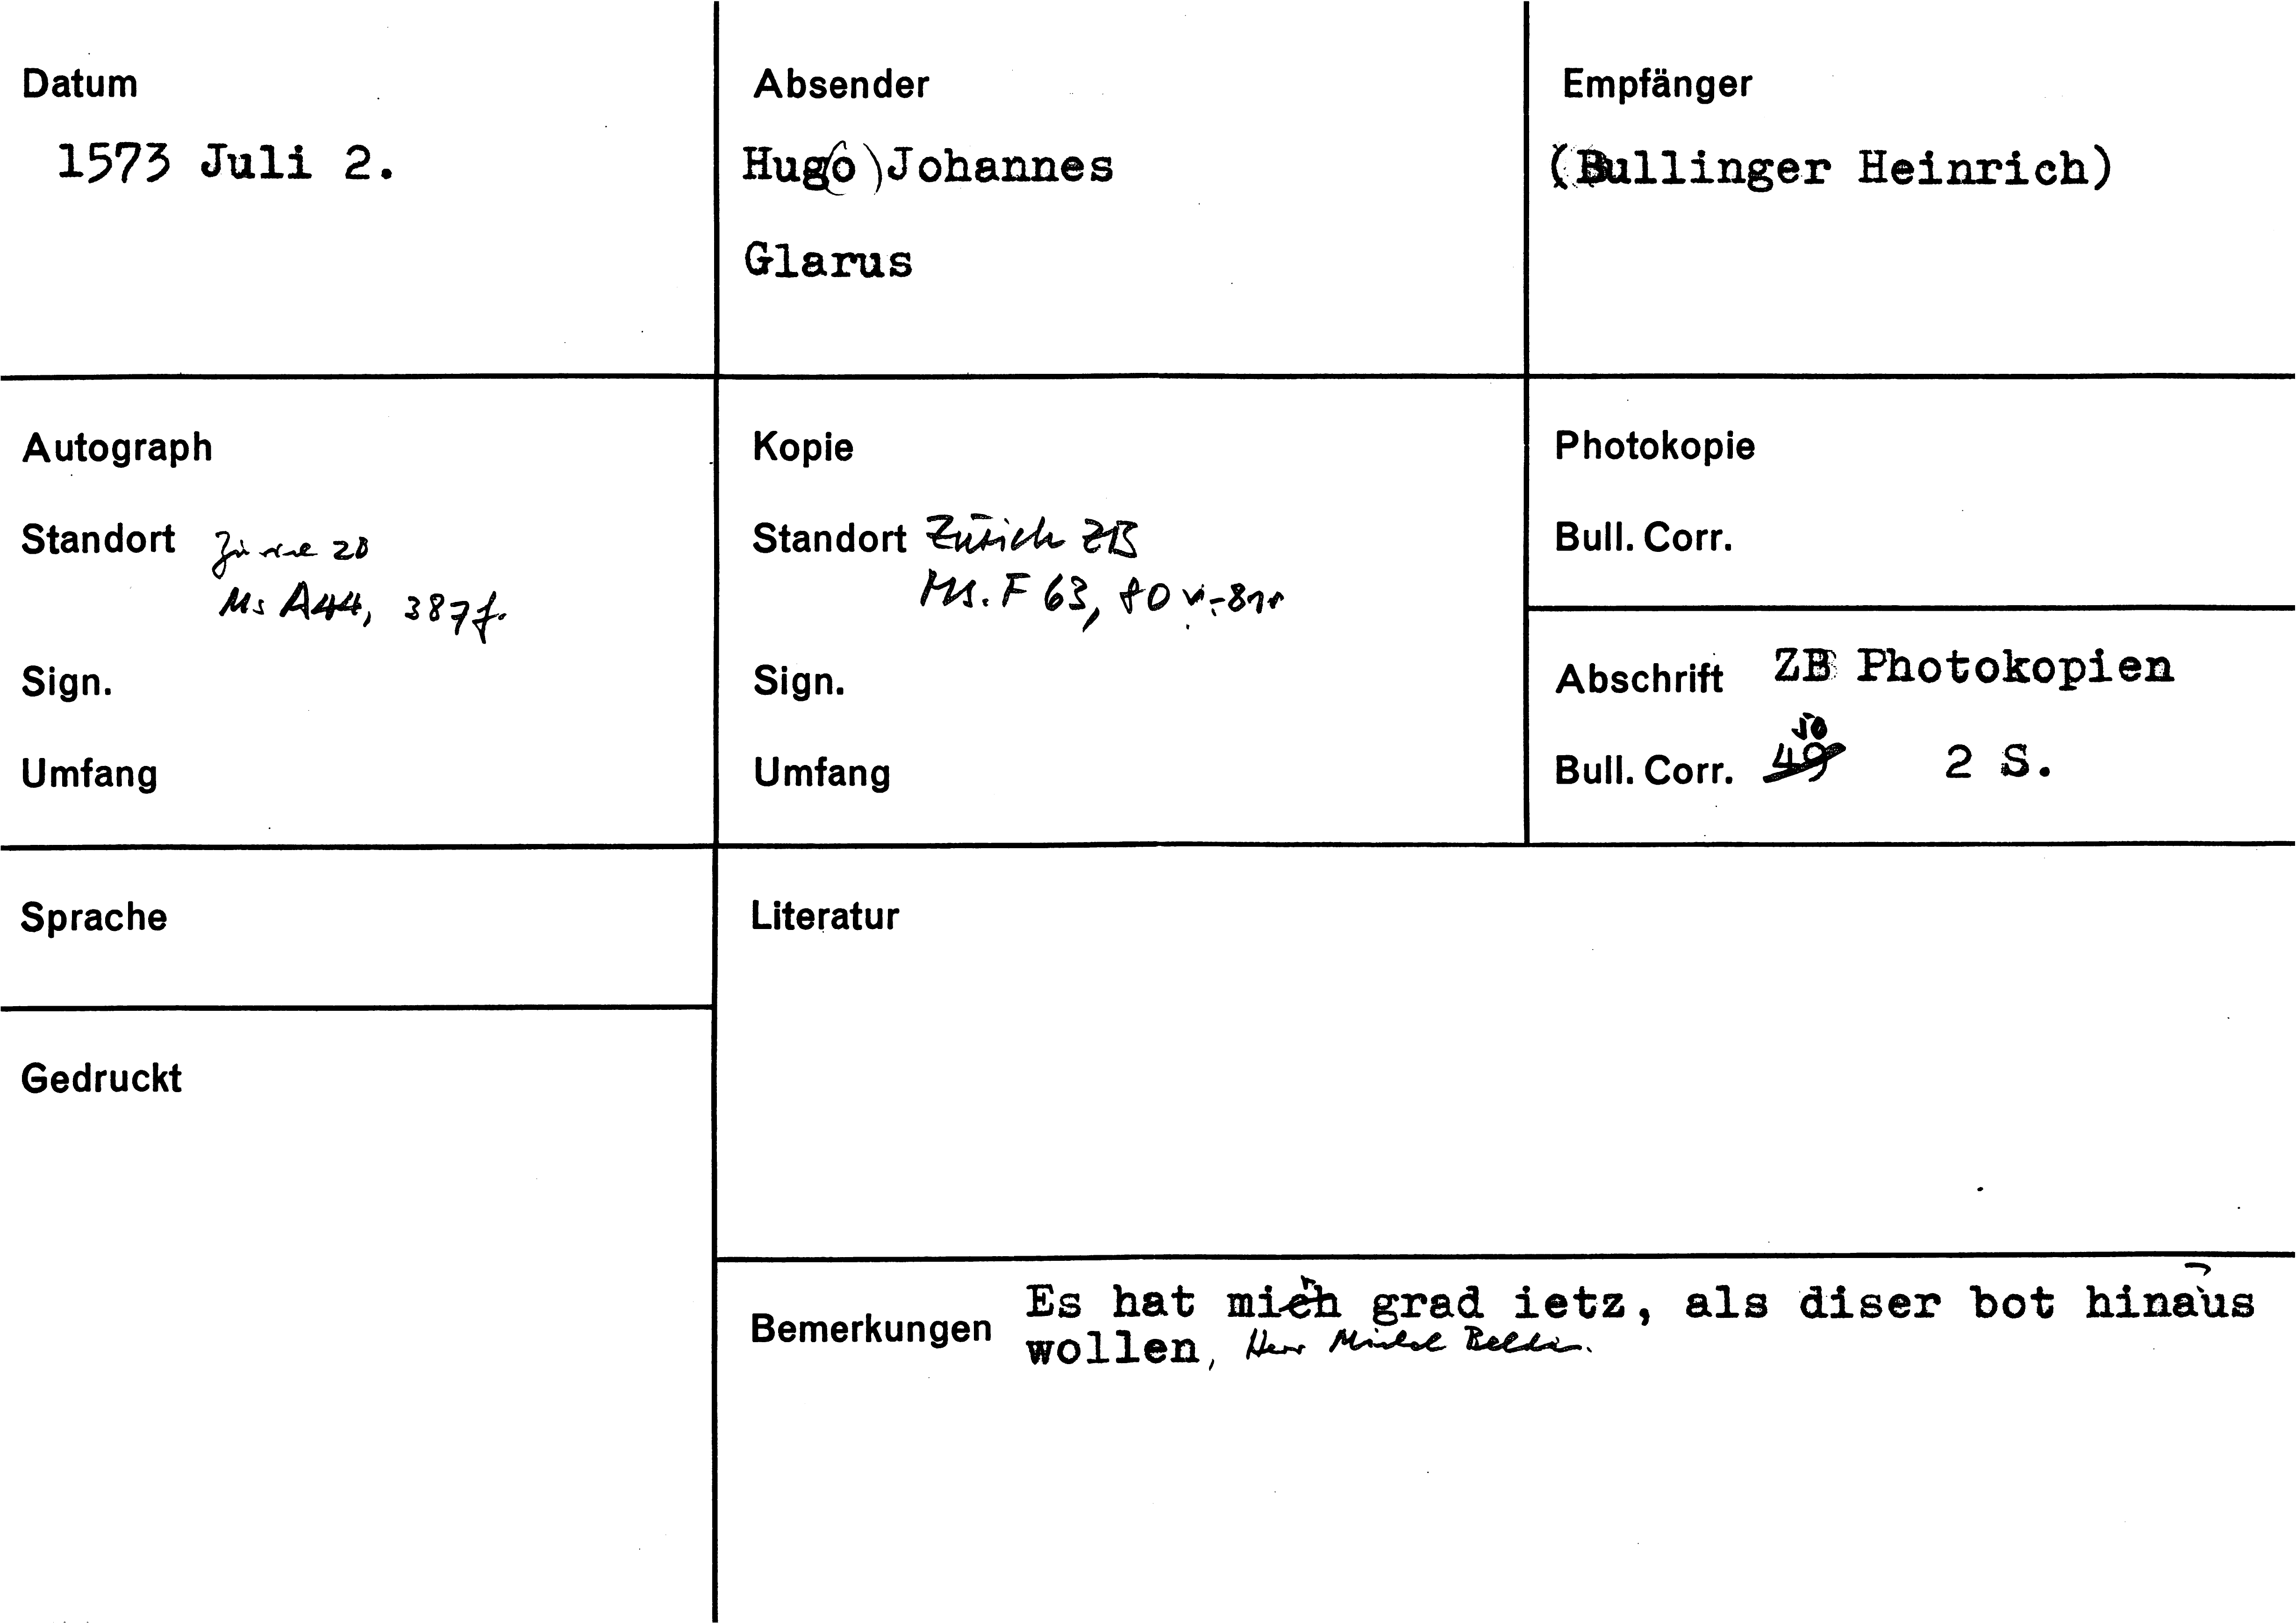 Datum
1573 Juli 2.
Absender
Hug(o) Johannes
Glarus
Empfänger
(Bullinger Heinrich)
Autograph
Standort Zürich ZB
Ms A44, 387f.
Sign.
Umfang
Kopie
Standort Zürich ZB
Ms. F 63, 80v-81r
Sign.
Umfang
Photokopie
Bull. Corr.
Abschrift ZB Photokopien
50
Bull. Corr. 49 2 S.
Sprache
Gedruckt
Literatur
Bemerkungen
Es hat mir grad ietz, als diser bot hinaus
wollen, Herr